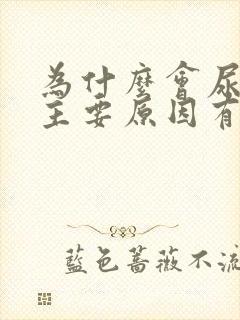 為什麼會尿
主要原因有
藍色薔薇不流